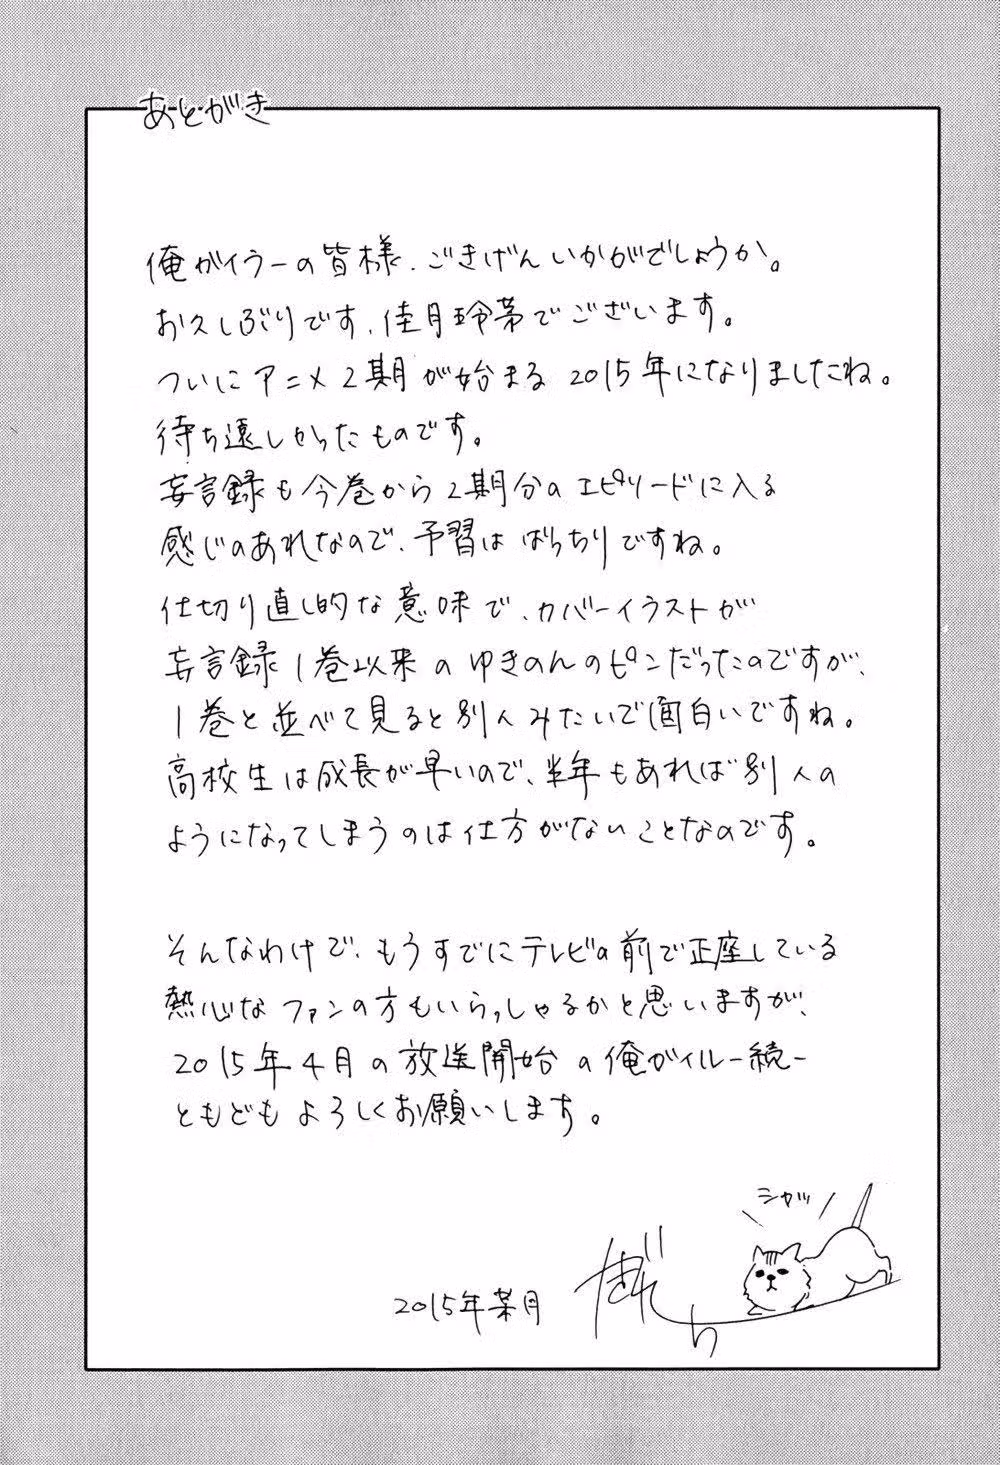 あとがき
俺ガイラーの皆様、ごきげんいかがでしょうか。
お久しぶりです、佳月玲茅でございます。
ついにアニメ2期が始まる2015年になりましたね。
待ち遠しかったものです。
妄言録も今巻から2期分のエピソードに入る
感じのあれなので、予習はばっちりですね。
仕切り直し的な意味で、カバーイラストが
妄言録1巻以来のゆきのんのピンだったのですが、
1巻と並べて見ると別人みたいで面白いですね。
高校生は成長が早いので、半年もあれば別人の
ようになってしまうのは仕方がないことなのです。
そんなわけで、もうすでにテレビの前で正座している
熱心なファンの方もいらっしゃるかと思いますが、
2015年4月の放送開始の俺ガイルー続ー
ともどもよろしくお願いします。
シャッ
2015年某月